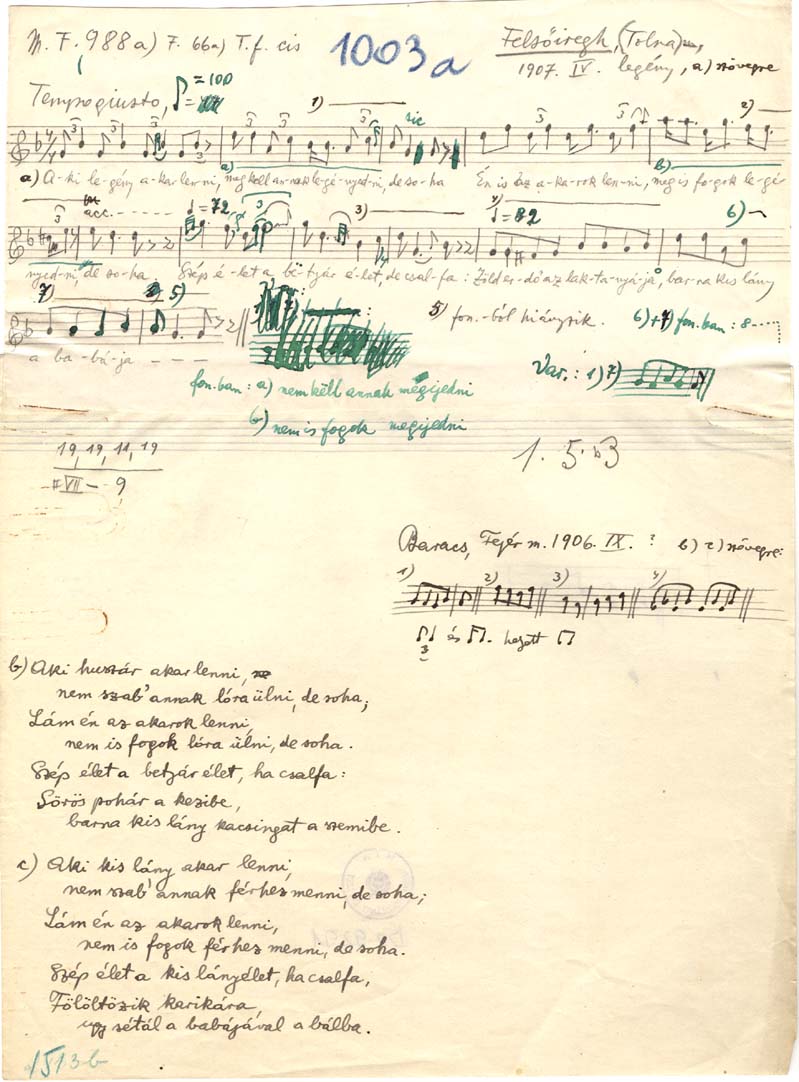 M. F. 988a) F. 66a) T. f. cis 1003a Felsőiregh, (Tolna)
1907. IV. legény, a) szövegre
Tempo giusto, ♪ = 100
1) sic 2)
a) A-ki le-gény a-kar len-ni, meg kell an-nak le-gé-nyed-ni, de so-ha Én is az a-ka-rok len-ni, meg is fo-gok le-gé-
acc. ------ ♩=72 3) 4) ♩=82 6)
nyed-ni, de so-ha. Szép é-let a be-tyár é-let, de csal-fa: Zöld er-dő az lak-ta-nyá-ja, bar-na kis lány
7) 5) 5) fon.-ból hiányzik. 6)+7) fon. ban: 8-----
a ba-bá-ja - - -
Var.: 1) 7)
fon. ban: a) nem kell annak megijedni
b) nem is fogok megijedni
19, 19, 11, 19
#VII — 9
1. 5. b3
Baracs, Fejér m. 1906. IX. ? b) c) szövegre:
1) 2) 3) 4)
3 és helyett
b) Aki huszár akar lenni,
nem szab' annak lóra ülni, de soha;
Lám én az akarok lenni,
nem is fogok lóra ülni, de soha.
Szép élet a betyár élet, ha csalfa:
Sörös pohár a kezibe,
barna kis lány kacsingat a szemibe.
c) Aki kis lány akar lenni,
nem szab' annak férhez menni, de soha;
Lám én az akarok lenni,
nem is fogok férhez menni, de soha.
Szép élet a kis lányélet, ha csalfa,
Fölöltözik karikára,
ugy sétál a babájával a bálba.
1513b